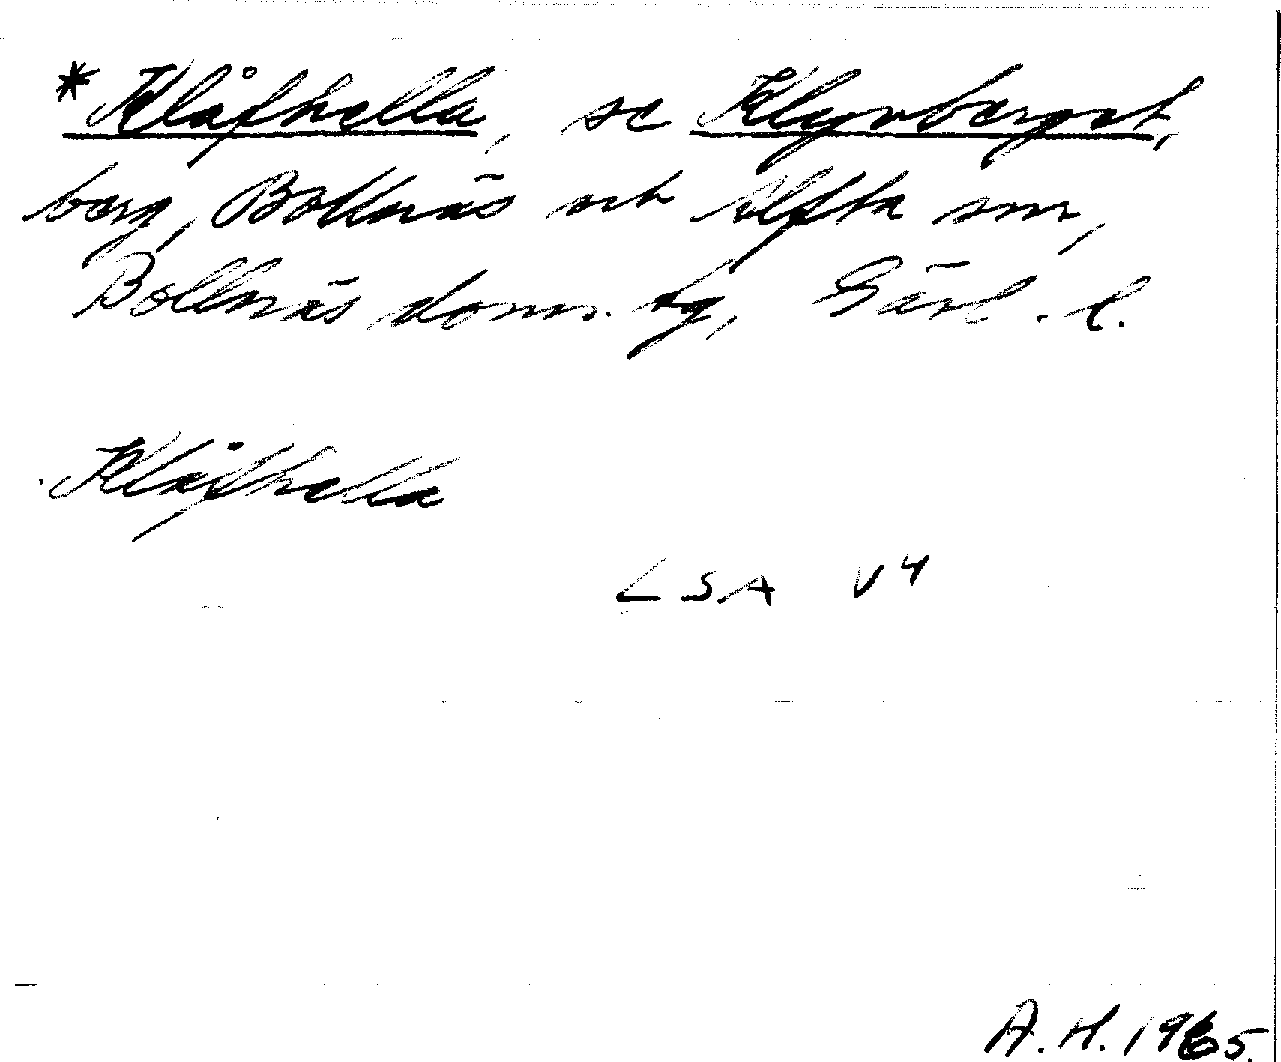 *Klåfhella, se Klyvberget,
berg, Bollnäs och Alfta snr,
Bollnäs doms. tg, Gävl. l.
Klåfhella
LSA V4
A.H. 1965.